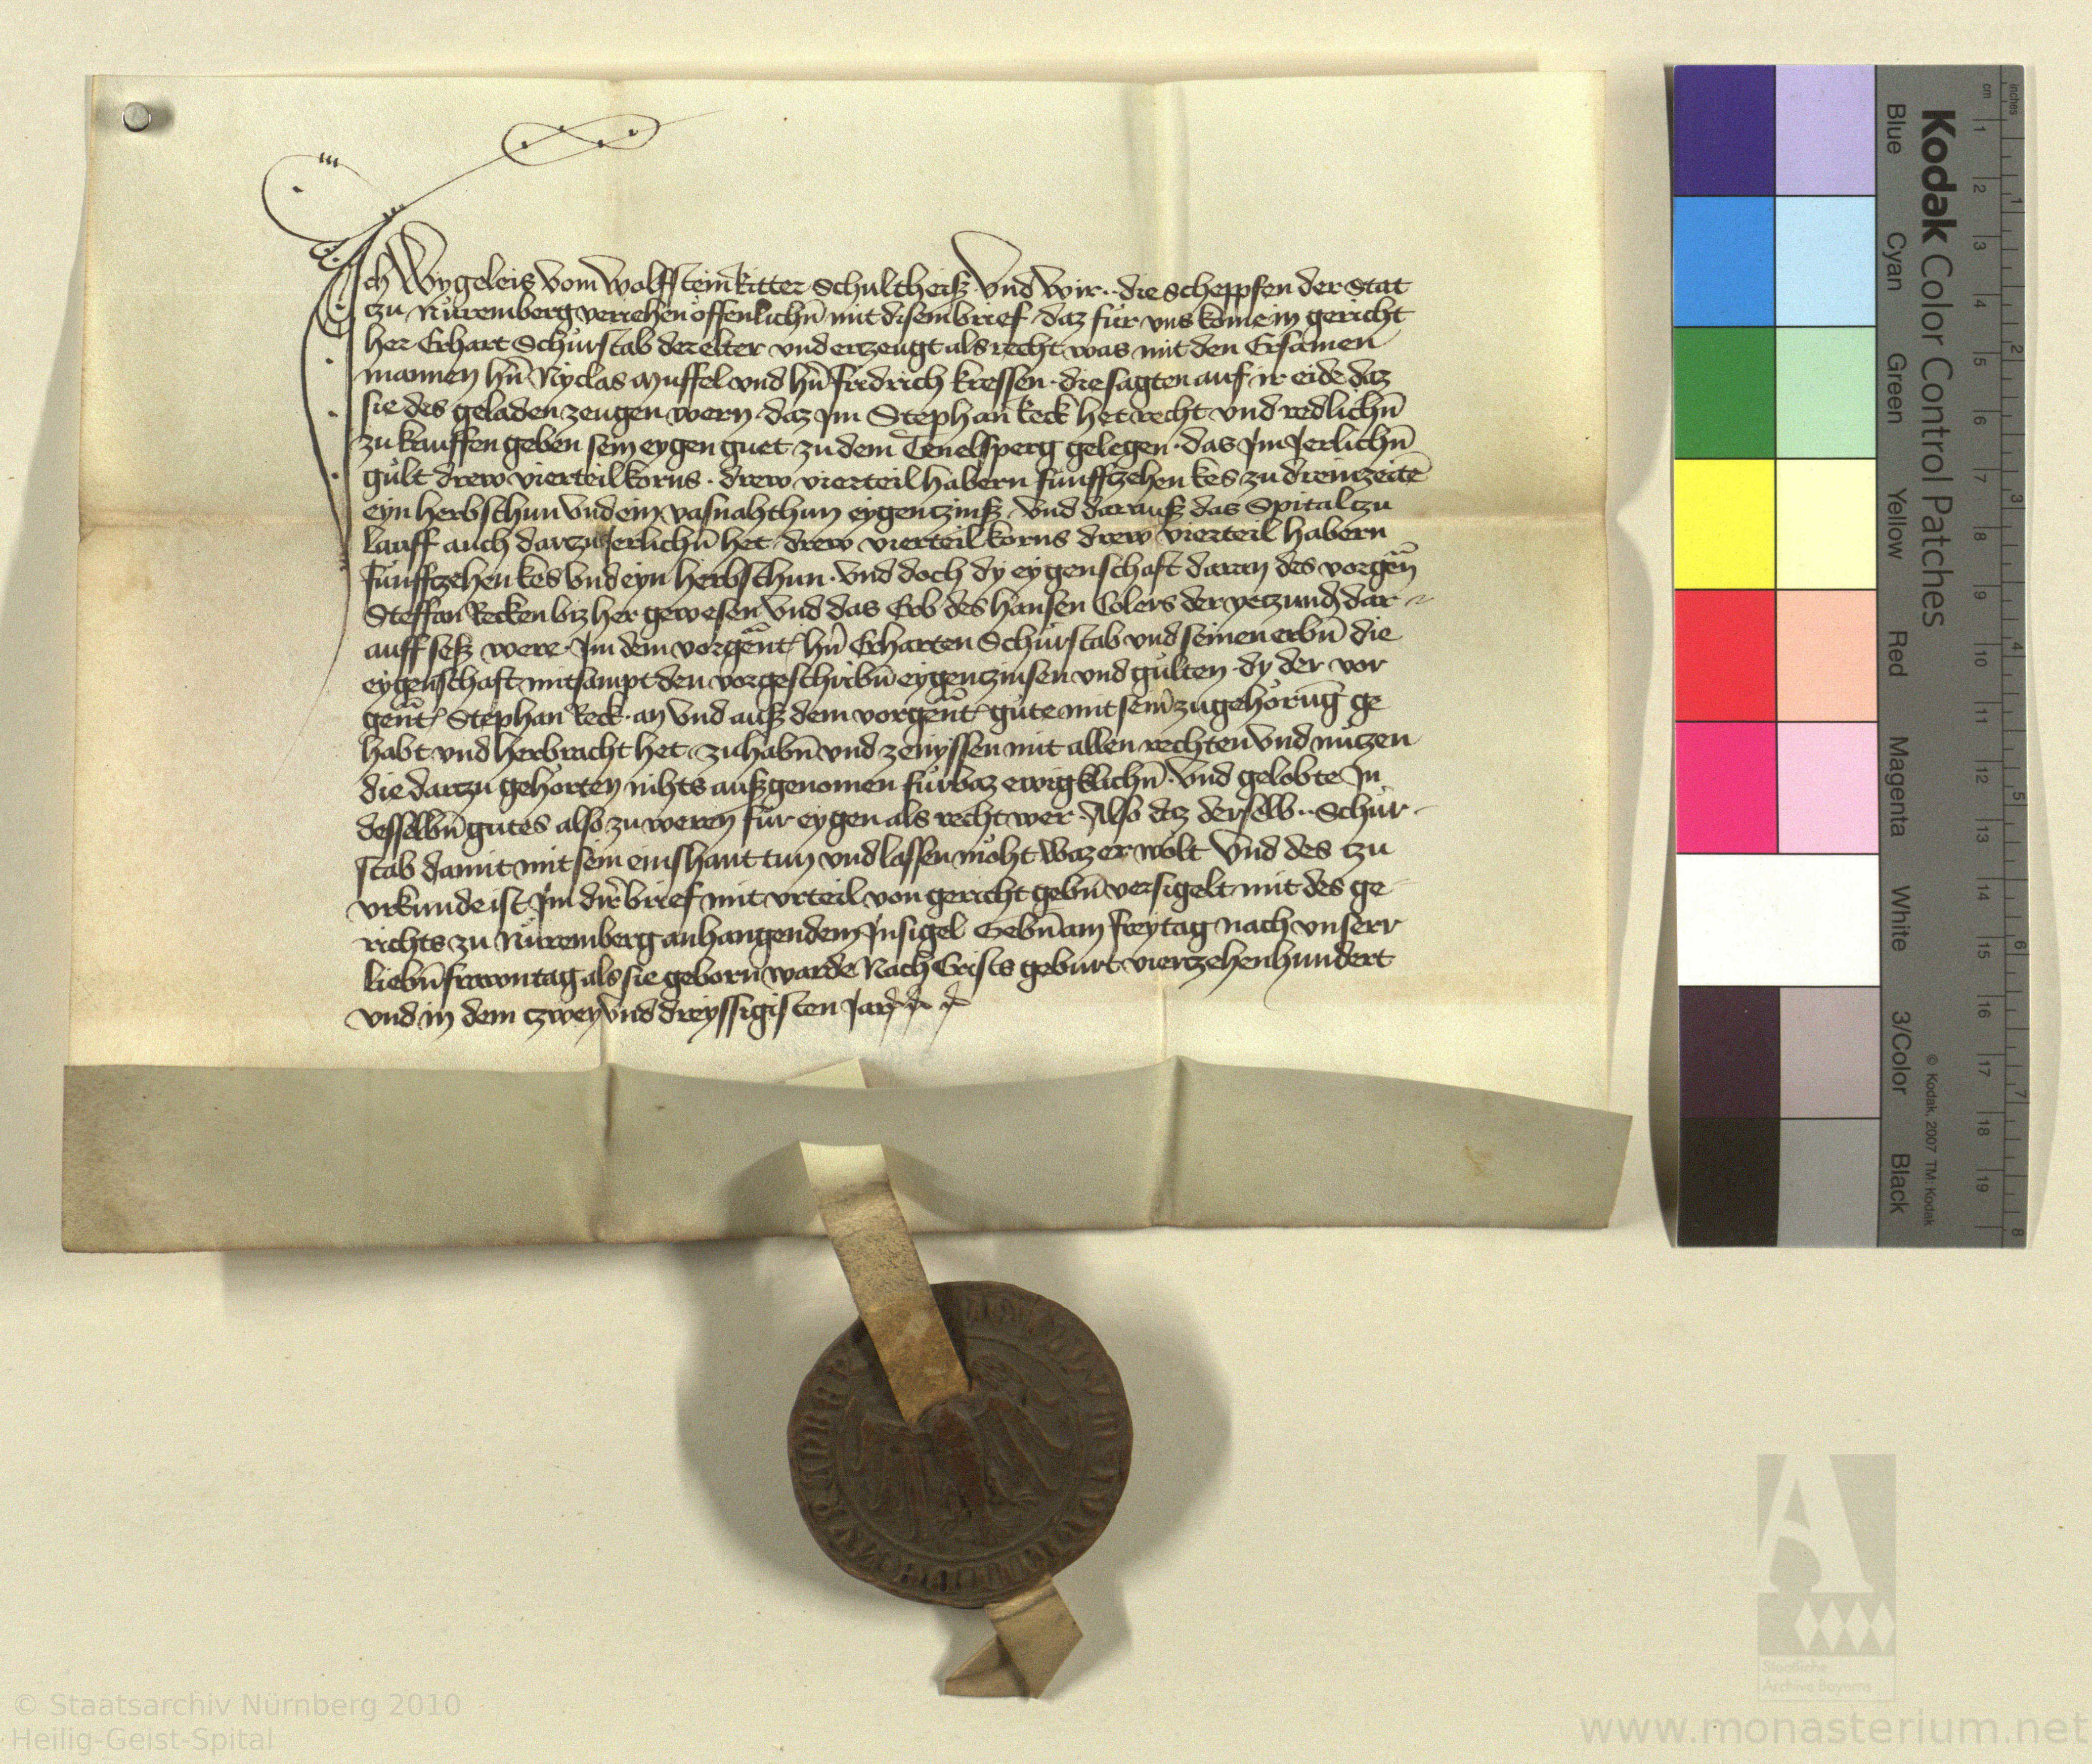 Ich Wygeleis vom Wolffstein Ritter Schultheisz. Vnd wir.. die scheppfen der Stat
czu Nüremberg veriehen offenlichñ mit disem brief. daz für vns kome in gericht
her Erhart Schürstab der elter vnd erzeugt als recht was mit den Ersamen
mannen hñ Nyclas Muffel vnd hñ fridrich kressen. die sagten auf ir eide daz
sie des geladen zeugen wern. daz Im Stephan Reck het recht vnd redlichñ
zu kauffen geben sein eygen guet zu dem Tenelsperg gelegen. das Im Jerlichñ
gült drew vierteil korns. drew vierteil habern fünffzehen kes zu dreinzeitē
eyn herbsthun vnd ein vasnahthun eygenczinsz. Vnd darausz das Spital czu
lauff auch darczu Jerlichñ het. drew vierteil korns drew vierteil habern
fünffzehen kes vnd eyn herbsthun. Vnd doch dy eygenschaft daran des vorgeñ
Steffan Recken biz her gewesen Vnd das Erb des hansen Colers der yeczund dar
auff sesz were. Im dem vorgeñt hñ Erharten Schürstab vnd seinen erbñ die
eygenschaft mitsampt den vorgeschribñ eygenczinsen vnd gülten. dy der vor
geñt Stephan Reck. an vnd ausz dem vorgeñt gute mit seim zugehörūg ge
habt vnd herbracht het. zu habñ vnd zenyssen mit allen rechten vnd nützen
die darczu gehorten nihts auszgenomen fürbaz ewigklichñ. Vnd gelobte In
desselbñ gutes also zu weren für eygen als recht wer. Also daz derselb.. Schür
stab damit mit seim einshant tun vnd lassen möht waz er wölt Vnd des czu
vrkunde ist Im dir̄ brief mit vrteil von gericht gebñ versigelt mit des ge
richts zu Nüremberg anhangendem Insigel Gebñ am freytag nach vnserr
liebñ frowentag als sie geborn warde Nach Crists geburt vierzehenhundert
vnd in dem czwey vnd dreyssigisten Jar
Kodak Color Control Patches
Blue Cyan Green Yellow Red Magenta White 3/Color Black
cm 1 2 3 4 5 6 7 8 9 10 11 12 13 14 15 16 17 18 19
inches 1 2 3 4 5 6 7 8
© Kodak, 2007 TM: Kodak
Staatliche
Archive Bayerns
© Staatsarchiv Nürnberg 2010
Heilig-Geist-Spital
www.monasterium.net